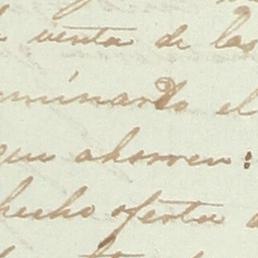 venta de las
uminando el
que ahorren:
hecho oferta